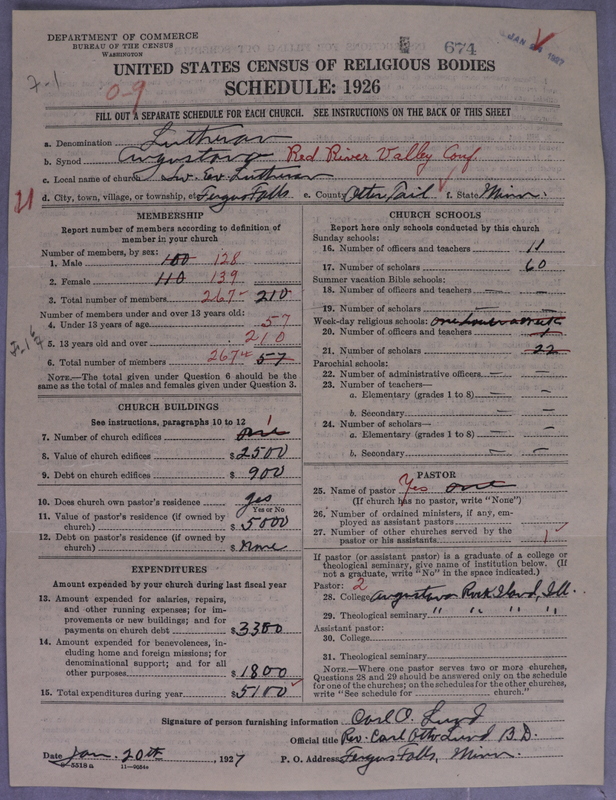 DEPARTMENT OF COMMERCE
BUREAU OF THE CENSUS
WASHINGTON
674
JAN 24 1927
7-1
0-9
UNITED STATES CENSUS OF RELIGIOUS BODIES
SCHEDULE: 1926
FILL OUT A SEPARATE SCHEDULE FOR EACH CHURCH. SEE INSTRUCTIONS ON THE BACK OF THIS SHEET
a. Denomination Lutheran
b. Synod Augustana Red River Valley Conf.
c. Local name of church Sw. Ev. Lutheran
21
d. City, town, village, or township, etc. Fergus Falls e. County Otter Tail f. State Minn.
MEMBERSHIP
Report number of members according to definition of member in your church
Number of members, by sex:
1. Male 100 128
2. Female 110 139
3. Total number of members 267 210
Number of members under and over 13 years old:
4. Under 13 years of age 57
5. 13 years old and over 210
6. Total number of members 267 57
NOTE.—The total given under Question 6 should be the same as the total of males and females given under Question 3.
CHURCH BUILDINGS
See instructions, paragraphs 10 to 12
7. Number of church edifices one 1
8. Value of church edifices $2500
9. Debt on church edifices $ 900
10. Does church own pastor's residence yes
Yes or No
11. Value of pastor's residence (if owned by church) $ 5000
12. Debt on pastor's residence (if owned by church) $ None
EXPENDITURES
Amount expended by your church during last fiscal year
13. Amount expended for salaries, repairs, and other running expenses; for improvements or new buildings; and for payments on church debt $3300
14. Amount expended for benevolences, including home and foreign missions; for denominational support; and for all other purposes $1800
15. Total expenditures during year $5100
CHURCH SCHOOLS
Report here only schools conducted by this church
Sunday schools:
16. Number of officers and teachers 11
17. Number of scholars 60
Summer vacation Bible schools:
18. Number of officers and teachers — —
19. Number of scholars — —
Week-day religious schools: one hour a week
20. Number of officers and teachers
21. Number of scholars 22
Parochial schools:
22. Number of administrative officers — —
23. Number of teachers—
a. Elementary (grades 1 to 8) — —
b. Secondary — —
24. Number of scholars—
a. Elementary (grades 1 to 8) — —
b. Secondary — —
PASTOR
25. Name of pastor Yes one
(If church has no pastor, write "None")
26. Number of ordained ministers, if any, employed as assistant pastors
27. Number of other churches served by the pastor or his assistants 1
If pastor (or assistant pastor) is a graduate of a college or theological seminary, give name of institution below. (If not a graduate, write "No" in the space indicated.)
Pastor: 2
28. College Augustana Rock Island, Ill.
29. Theological seminary " " " "
Assistant pastor:
30. College
31. Theological seminary
NOTE.—Where one pastor serves two or more churches, Questions 28 and 29 should be answered only on the schedule for one of the churches; on the schedules for the other churches, write "See schedule for ____ church."
Signature of person furnishing information Carl O. Lund
Official title Rev. Carl Otto Lund B.D.
Date Jan. 20th, 1927 P. O. Address Fergus Falls, Minn.
8-5518 a